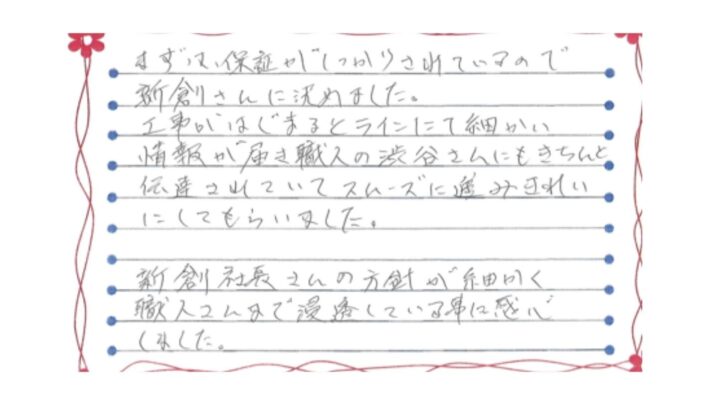 まずは、保証がしっかりされているので
新創さんに決めました。
工事がはじまるとラインにて細かい
情報が届き職人の渋谷さんにもきちんと
伝達されていてスムーズに進みきれい
にしてもらいました。
新創社長さんの方針が細かく
職人さんまで浸透している事に感心
しました。